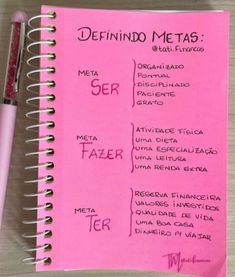 DEFININDO METAS:
@tati.financas
META
SER
ORGANIZADO
PONTUAL
DISCIPLINADO
PACIENTE
GRATO
META
FAZER
ATIVIDADE FÍSICA
UMA DIETA
UMA ESPECIALIZAÇÃO
UMA LEITURA
UMA RENDA EXTRA
META
TER
RESERVA FINANCEIRA
VALORES INVESTIDOS
QUALIDADE DE VIDA
UMA BOA CASA
DINHEIRO P/ VIAJAR